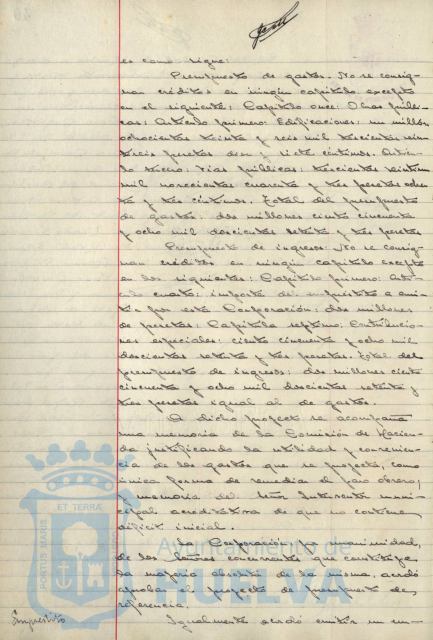 es como sigue:
Presupuesto de gastos. No se consig-
nan créditos en ningún capítulo excepto
en el siguiente: Capítulo once: Obras públi-
cas: Artículo primero: Edificaciones: un millón
ochocientos treinta y seis mil trescientos vein-
tiseis pesetas diez y siete céntimos. Artícu-
lo tercero: Vías públicas: trescientos veintiun
mil novecientas cuarenta y tres pesetas ochen-
ta y tres céntimos. Total del presupuesto
de gastos: dos millones ciento cincuenta
y ocho mil doscientas setenta y tres pesetas
Presupuesto de ingresos: No se consig-
nan créditos en ningún capítulo excepto
en los siguientes: Capítulo primero: Artí-
culo cuarto: importe del empréstito a emi-
tir por esta Corporación: dos millones
de pesetas: Capítulo séptimo: Contribucio-
nes especiales: ciento cincuenta y ocho mil
doscientas setenta y tres pesetas. Total del
presupuesto de ingresos: dos millones ciento
cincuenta y ocho mil doscientas setenta y
tres pesetas igual al de gastos.
A dicho proyecto se acompaña
una memoria de la Comisión de Hacien-
da justificando la utilidad y convenien-
cia de los gastos que se proyecta, como
única forma de remediar el paro obrero;
y memoria del Señor Interventor muni-
cipal acreditativa de que no contiene
déficit inicial.
La Corporación por unanimidad,
de los Señores concurrentes que constituye
la mayoría absoluta de la misma, acordó
aprobar el proyecto de presupuesto de
referencia.
Empréstito
Igualmente acordó emitir un em-
PORTUS MARIS
ET TERRÆ
Ayuntamiento de
HUELVA